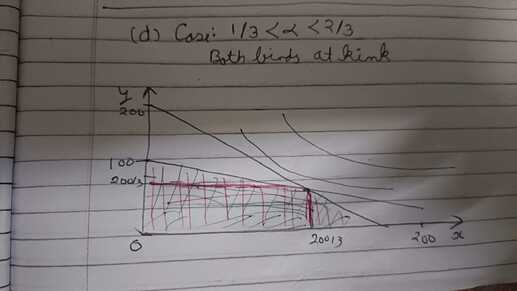 (d) Case: 1/3 < α < 2/3
Both binds at kink
y
200
100
200/3
0
200/3
200
x